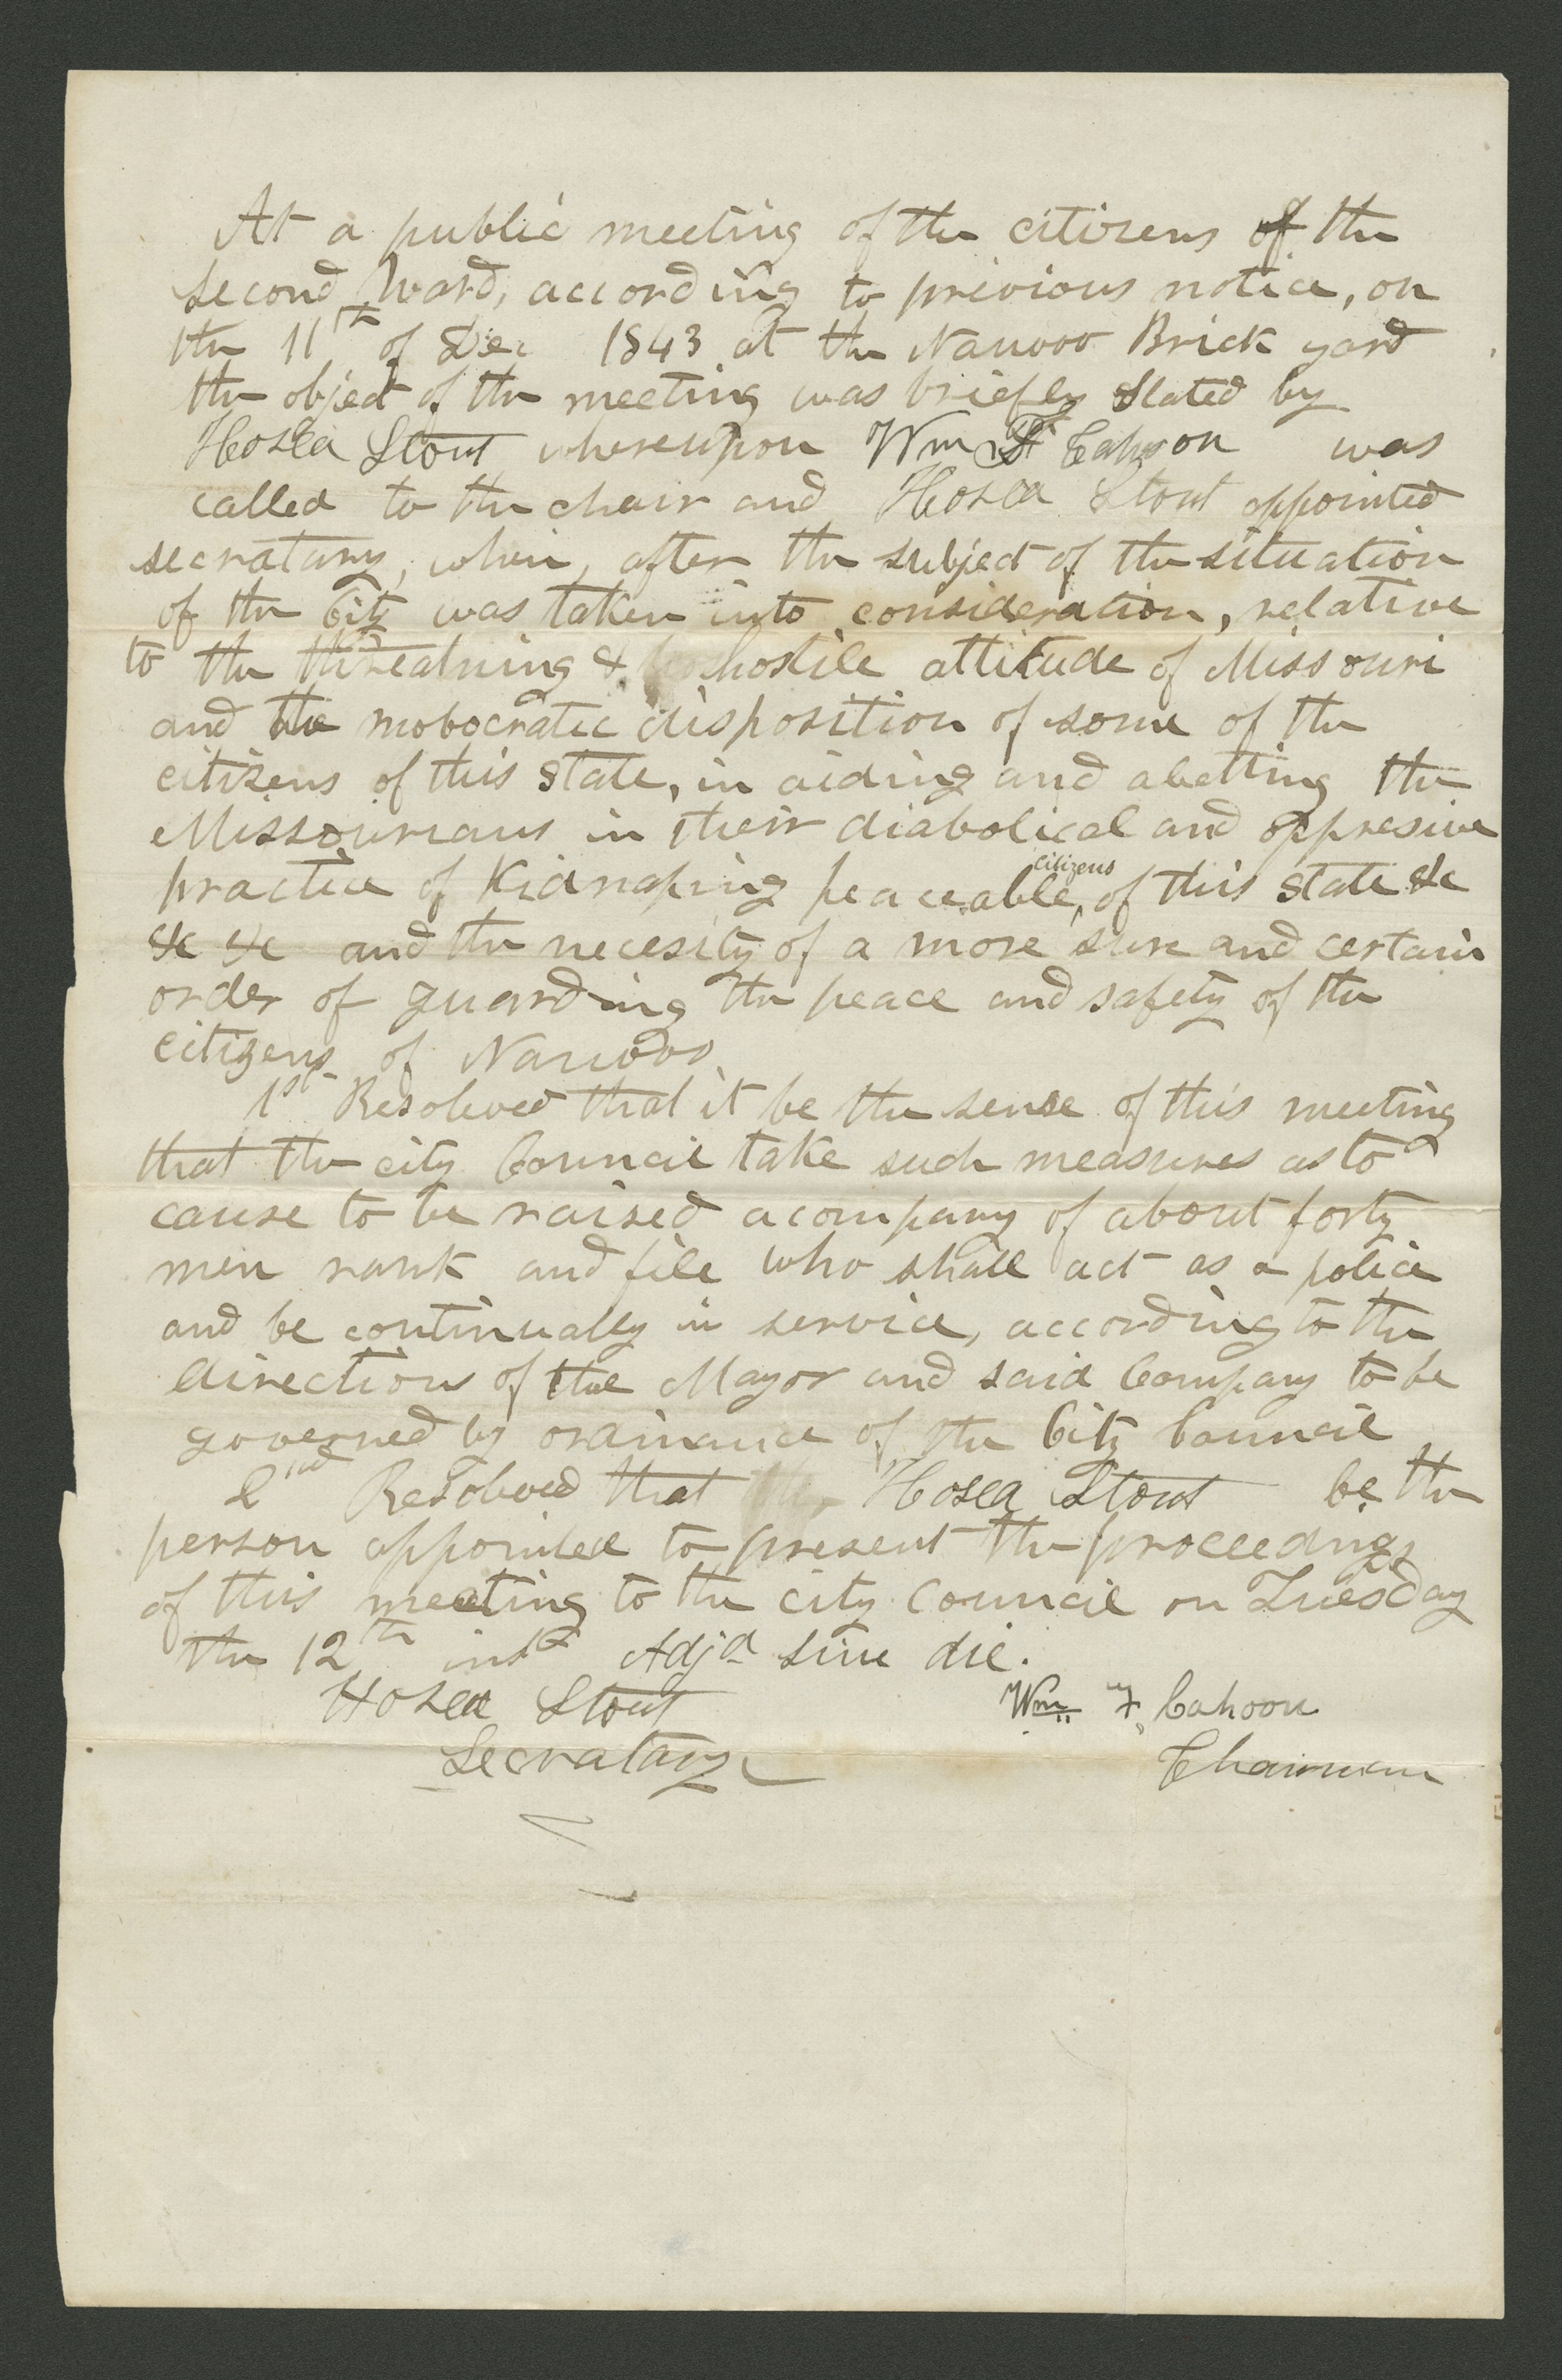 At a public meeting of the citizens of the
second Ward, according to previous notice, on
the 11th of Dec 1843 at the Nauvoo Brick yard
the object of the meeting was briefly stated by
Hosea Stout whereupon Wm F Cahoon was
called to the chair and Hosea Stout appointed
secratary, when, after the subject of the situation
of the City was taken into consideration, relative
to the threatning & hostile attitude of Missouri
and the mobocratic disposition of some of the
citizens of this state, in aiding and abetting the
Missourians in their diabolical and oppresive
practice of Kidnaping peaceable citizens of this state &c
&c &c and the necesity of a more sure and certain
order of guarding the peace and safety of the
citizens of Nauvoo.
1st Resolved that it be the sense of this meeting
that the city Council take such measures as to
cause to be raised a company of about forty
men rank and file who shall act as a police
and be continually in service, according to the
directions of the Mayor and said Company to be
governed by ordinance of the City Council
2nd Resolved that Hosea Stout be the
person appointed to present the proceedings
of this meeting to the city Council on Tuesday
the 12th inst Adjd sine die.
Hosea Stout Wm F. Cahoon
Secratary Chairman